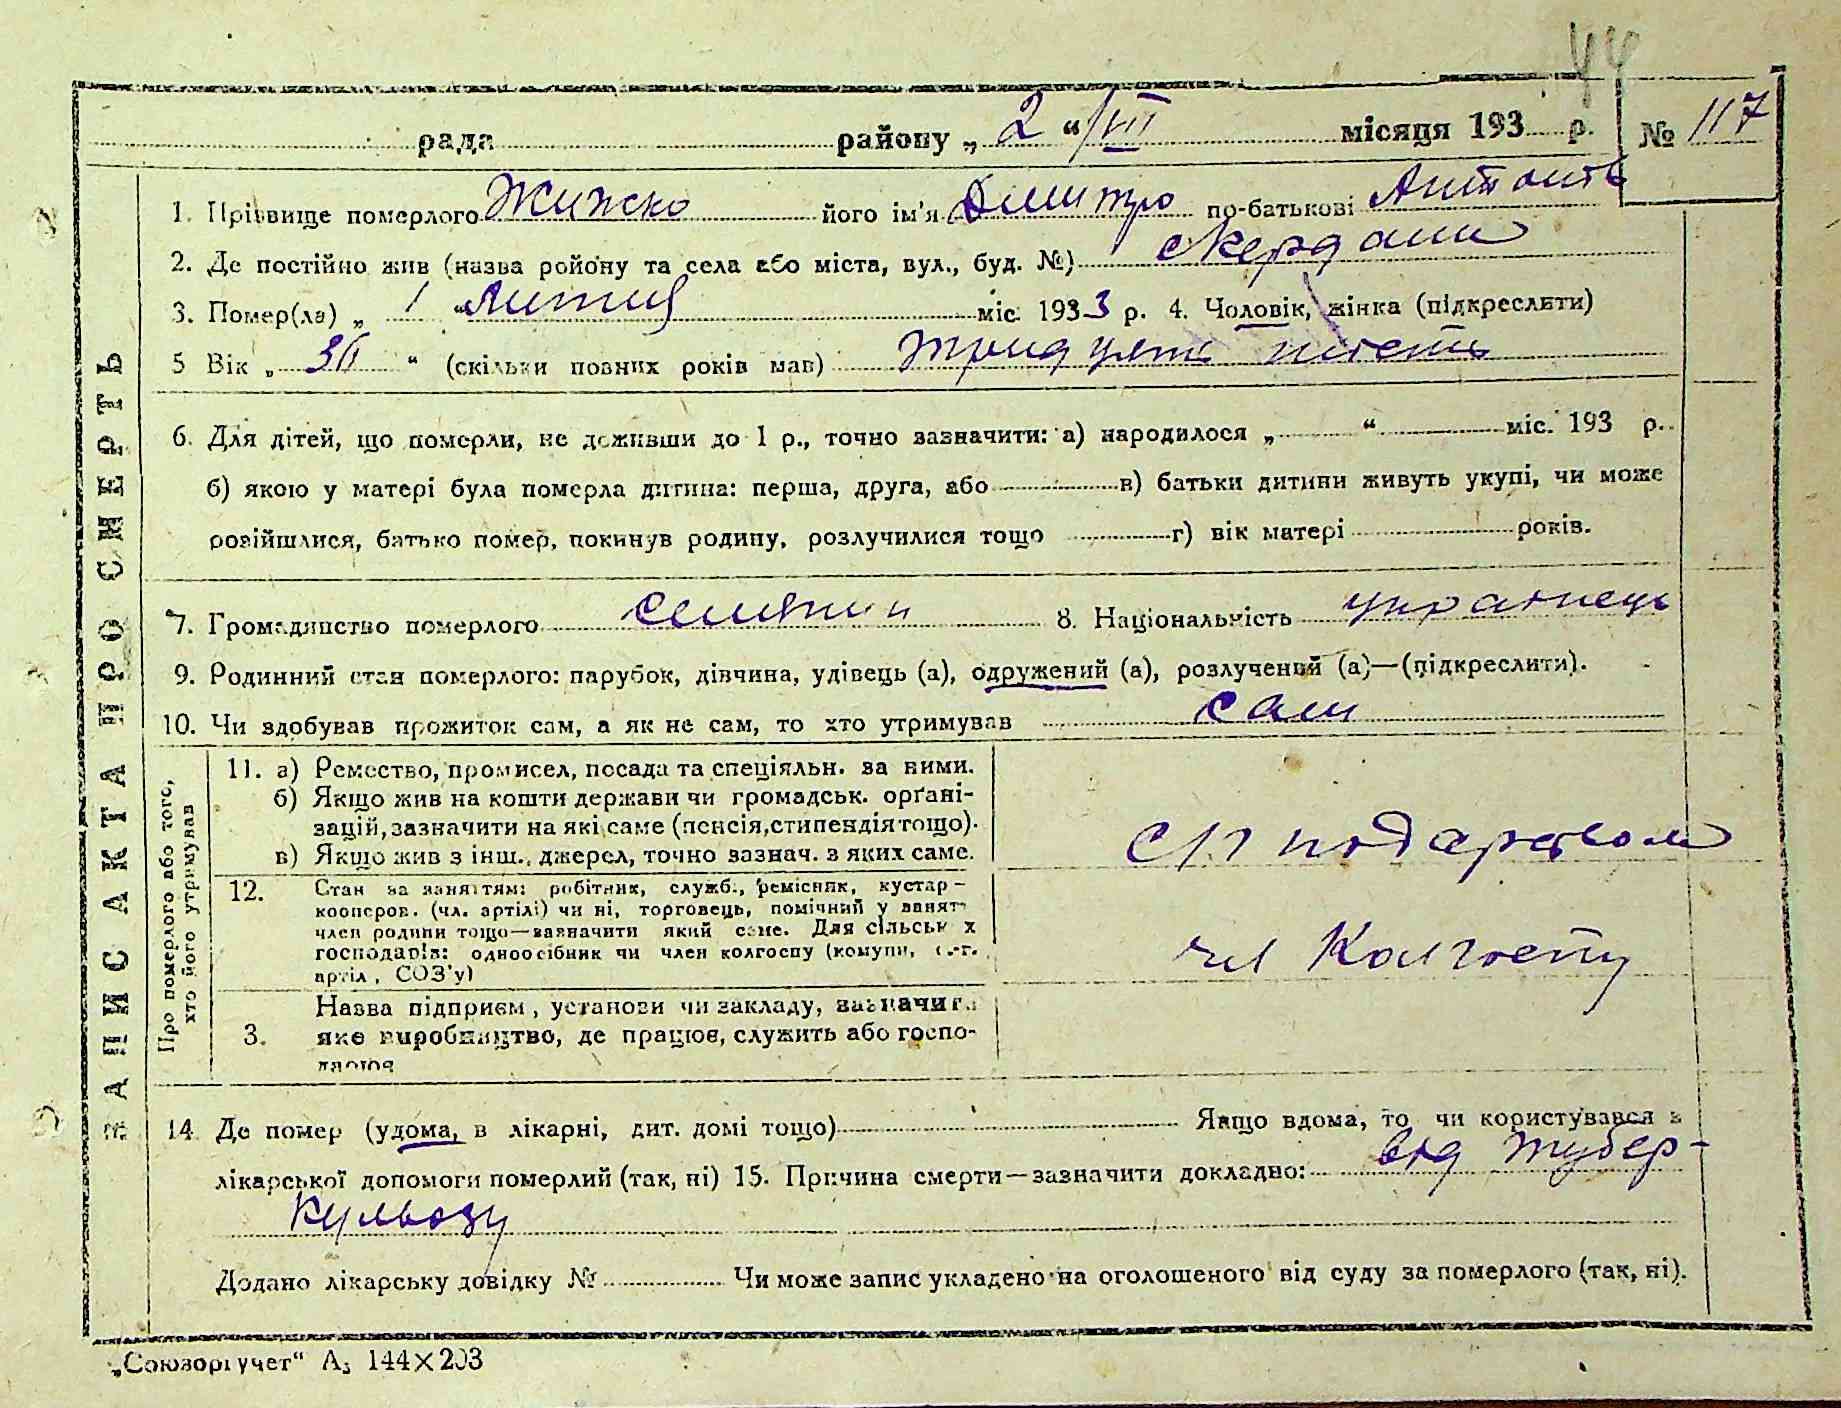 44
рада району „ 2 “ /VII місяця 193 р. № 117
ЗАПИС АКТА ПРО СМЕРТЬ
1. Прізвище померлого Жижко його ім'я Дмитро по-батькові
2. Де постійно жив (назваройону та села або міста, вул., буд. №)
3. Помер(ла) „ 1 “ липня міс. 1933 р. 4. Чоловік, жінка (підкреслити)
5 Вік „ “ (скільки повних років мав) тридцять шість
6. Для дітей, що померли, не доживши до 1 р., точно зазначити: а) народилося „ “ міс. 193 р.
б) якою у матері була померла дитина: перша, друга, або в) батьки дитини живуть укупі, чи може
розійшлися, батько помер, покинув родину, розлучилися тощо г) вік матері років.
7. Громадянство померлого селянин 8. Національність українець
9. Родинний стан померлого: парубок, дівчина, удівець (а), одружений (а), розлучений (а)—(підкреслити).
10. Чи здобував прожиток сам, а як не сам, то хто утримував сам
Про померлого або того,
хто його утримував
11. а) Ремество, промисел, посада та спеціяльн. за ними.
б) Якщо жив на кошти держави чи громадськ. орґані-
зацій, зазначити на які саме (пенсія, стипендія тощо).
в) Якщо жив з інш., джерел, точно зазнач. з яких саме.
с/г подарством
12. Стан за заняттям: робітник, служб., ремісник, кустар—
кооперов. (чл. артілі) чи ні, торговець, помічний у занят.
член родини тощо—зазначити який саме. Для сільськ х
господарів: одноосібник чи член колгоспу (комуни, с.-г.
артіл, СОЗ'у)
чл Колгоспу
3. Назва підприєм, установи чи закладу, зазначит.
яке виробництво, де працює, служить або госпо-
дарює
14. Де помер (удома, в лікарні, дит. домі тощо) Якщо вдома, то чи користувався з
лікарської допомоги померлий (так, ні) 15. Причина смерти—зазначити докладно: від тубер-
кульозу
Додано лікарську довідку № Чи може запис укладено на оголошеного від суду за померлого (так, ні).
„Союзоргучет“ А5 144×203